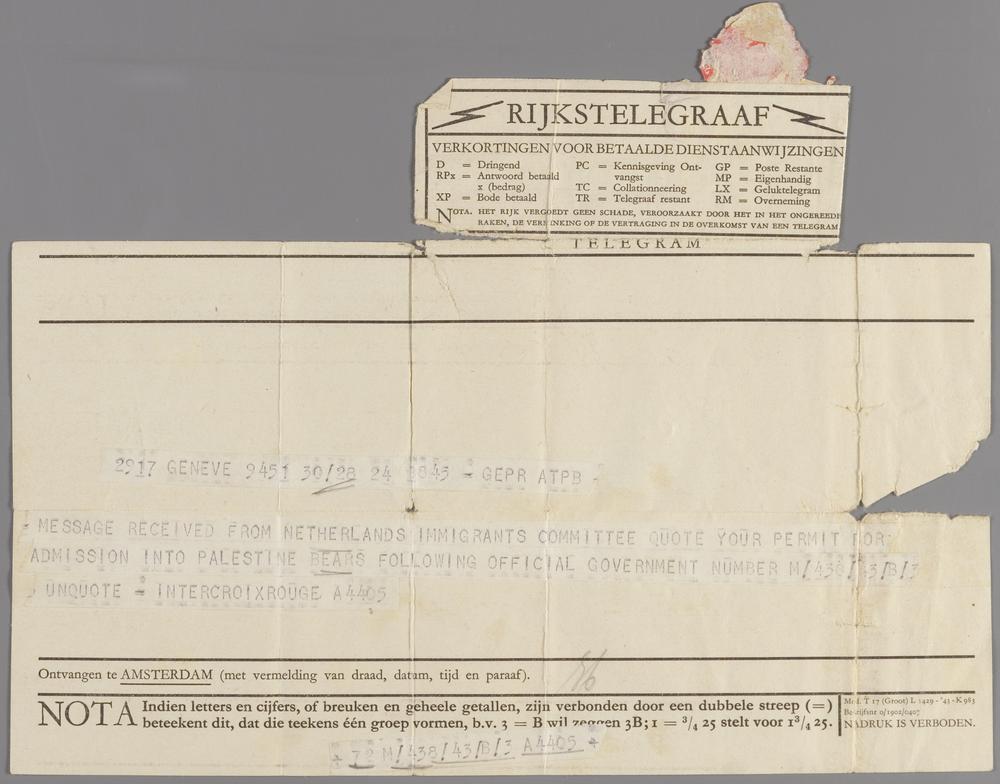 RIJKSTELEGRAAF
VERKORTINGEN VOOR BETAALDE DIENSTAANWIJZINGEN
D = Dringend
RPx = Antwoord betaald
x (bedrag)
XP = Bode betaald
PC = Kennisgeving Ont-
vangst
TC = Collationneering
TR = Telegraaf restant
GP = Poste Restante
MP = Eigenhandig
LX = Geluktelegram
RM = Overneming
NOTA. HET RIJK VERGOEDT GEEN SCHADE, VEROORZAAKT DOOR HET IN HET ONGEREEDE
RAKEN, DE VERMINKING OF DE VERTRAGING IN DE OVERKOMST VAN EEN TELEGRAM
TELEGRAM
2917 GENEVE 9451 30/28 24 1845 = GEPR ATPB -
MESSAGE RECEIVED FROM NETHERLANDS IMMIGRANTS COMMITTEE QUOTE YOUR PERMIT FOR
ADMISSION INTO PALESTINE BEARS FOLLOWING OFFICIAL GOVERNMENT NUMBER M/438/43/B/3
UNQUOTE = INTERCROIXROUGE A4405
Ontvangen te AMSTERDAM (met vermelding van draad, datum, tijd en paraaf).
NOTA Indien letters en cijfers, of breuken en geheele getallen, zijn verbonden door een dubbele streep (=)
beteekent dit, dat die teekens één groep vormen, b.v. 3 = B wil zeggen 3B; 1 = 3/4 25 stelt voor 1 3/4 25.
Mod. T 17 (Groot) L 1429 - '43 - K 983
Bedrijfsnr 0/1902/0407
NADRUK IS VERBODEN.
+ 72 M/438/43/B/3 A4405 +